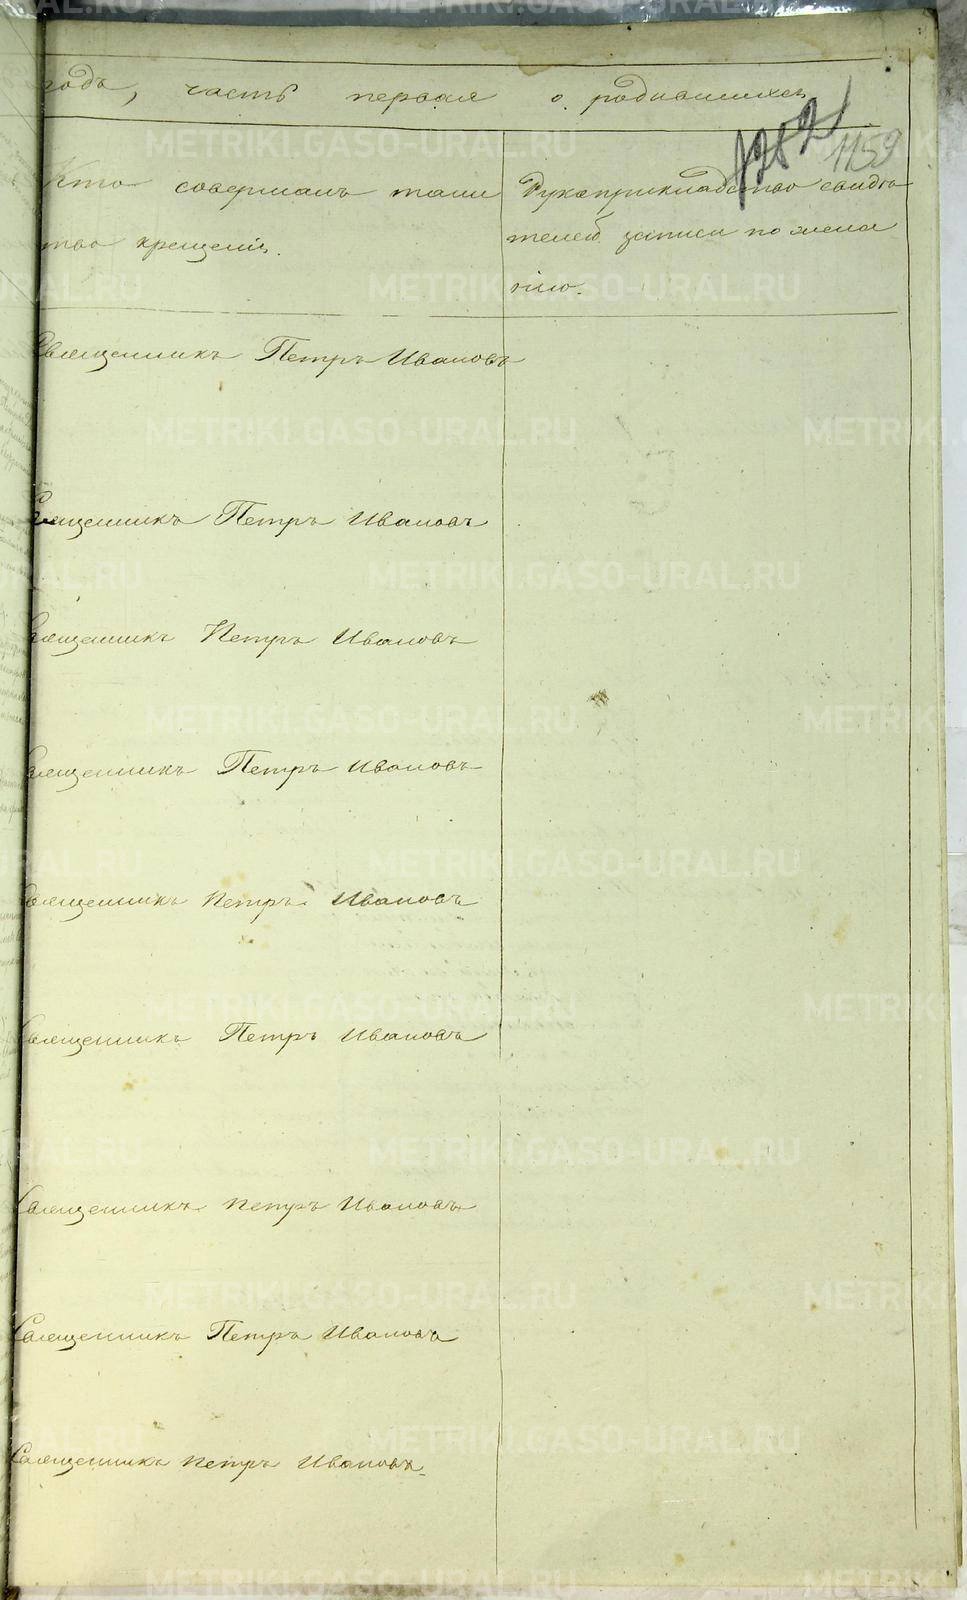 года, часть первая о родившихся
1159
Кто совершалъ таин
ство крещенія.
Рукоприкладство свидѣ
телей записи по жела
нію.
Священникъ Петръ Ивановъ
Священникъ Петръ Ивановъ
Священникъ Петръ Ивановъ
Священникъ Петръ Ивановъ
Священникъ Петръ Ивановъ
Священникъ Петръ Ивановъ
Священникъ Петръ Ивановъ
Священникъ Петръ Ивановъ
Священникъ Петръ Ивановъ
METRIKI.GASO-URAL.RU